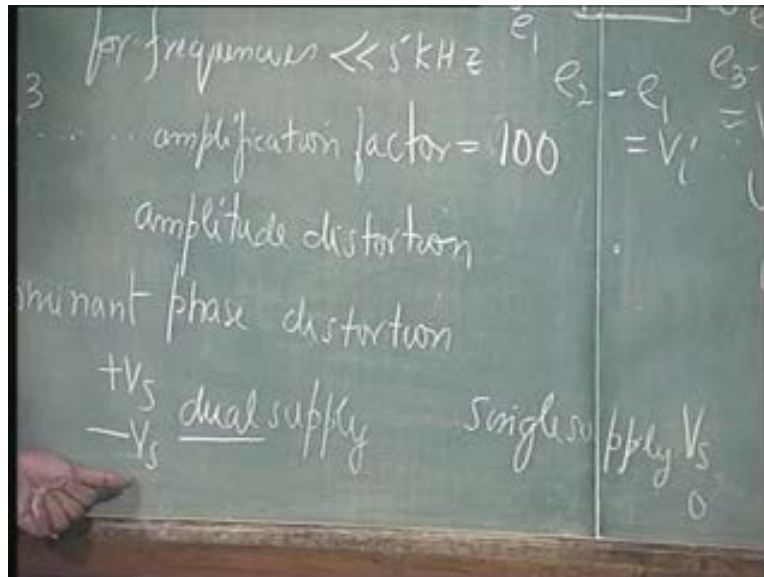 for frequencies << 5 kHz
e₁
e
3
e₂ - e₁
= Vi
e₃-
= V
..... amplification factor = 100
amplitude distortion
minant phase distortion
+Vs
-Vs
dual supply
single supply Vs
0